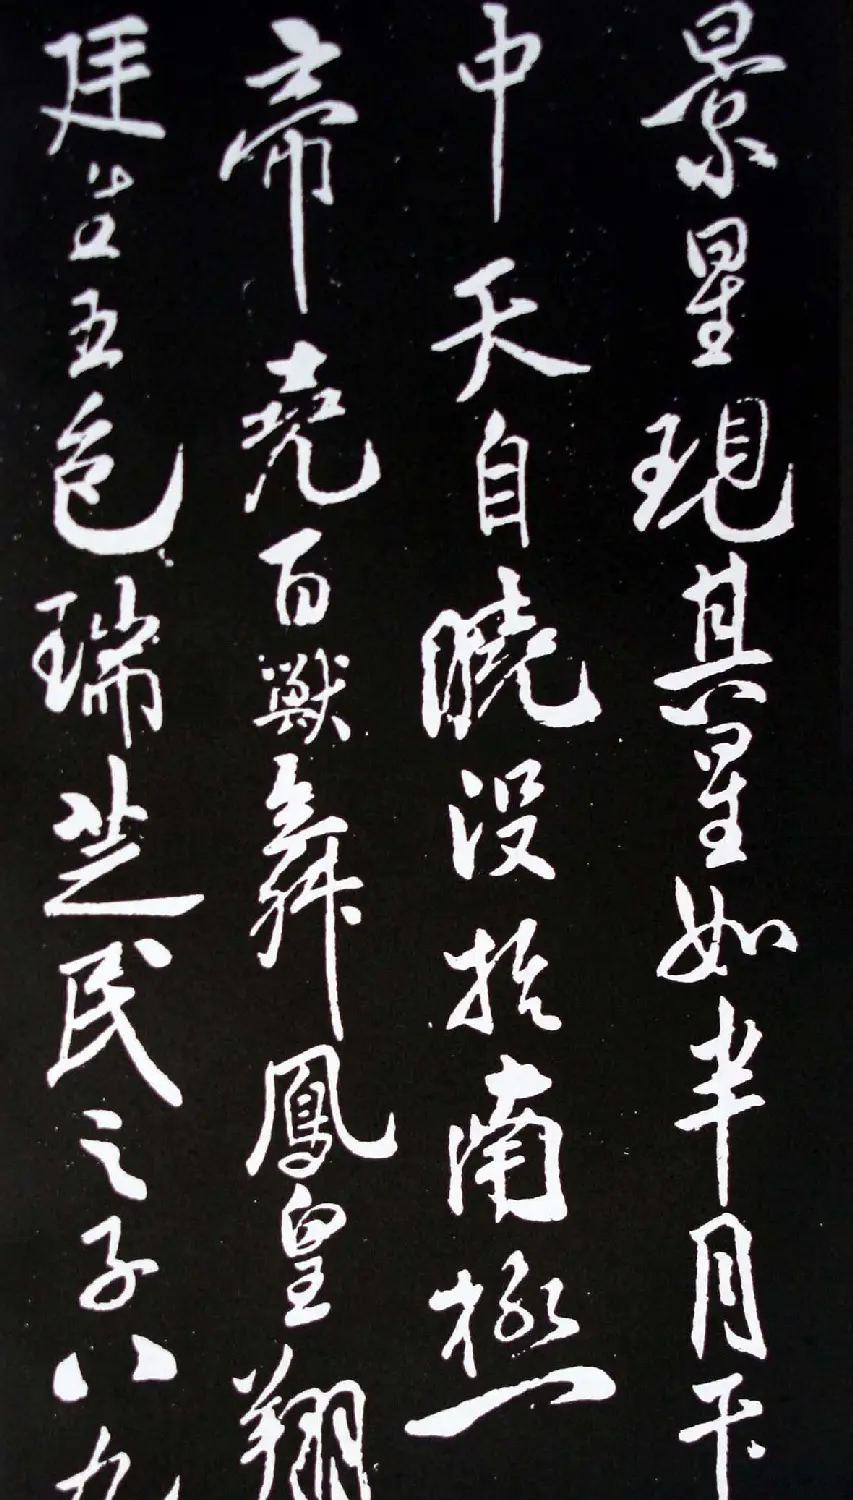 景星現其星如半月
中天自曉沒於南極
帝堯百獸舞鳳皇翔
廷五色瑞芝民之子八九